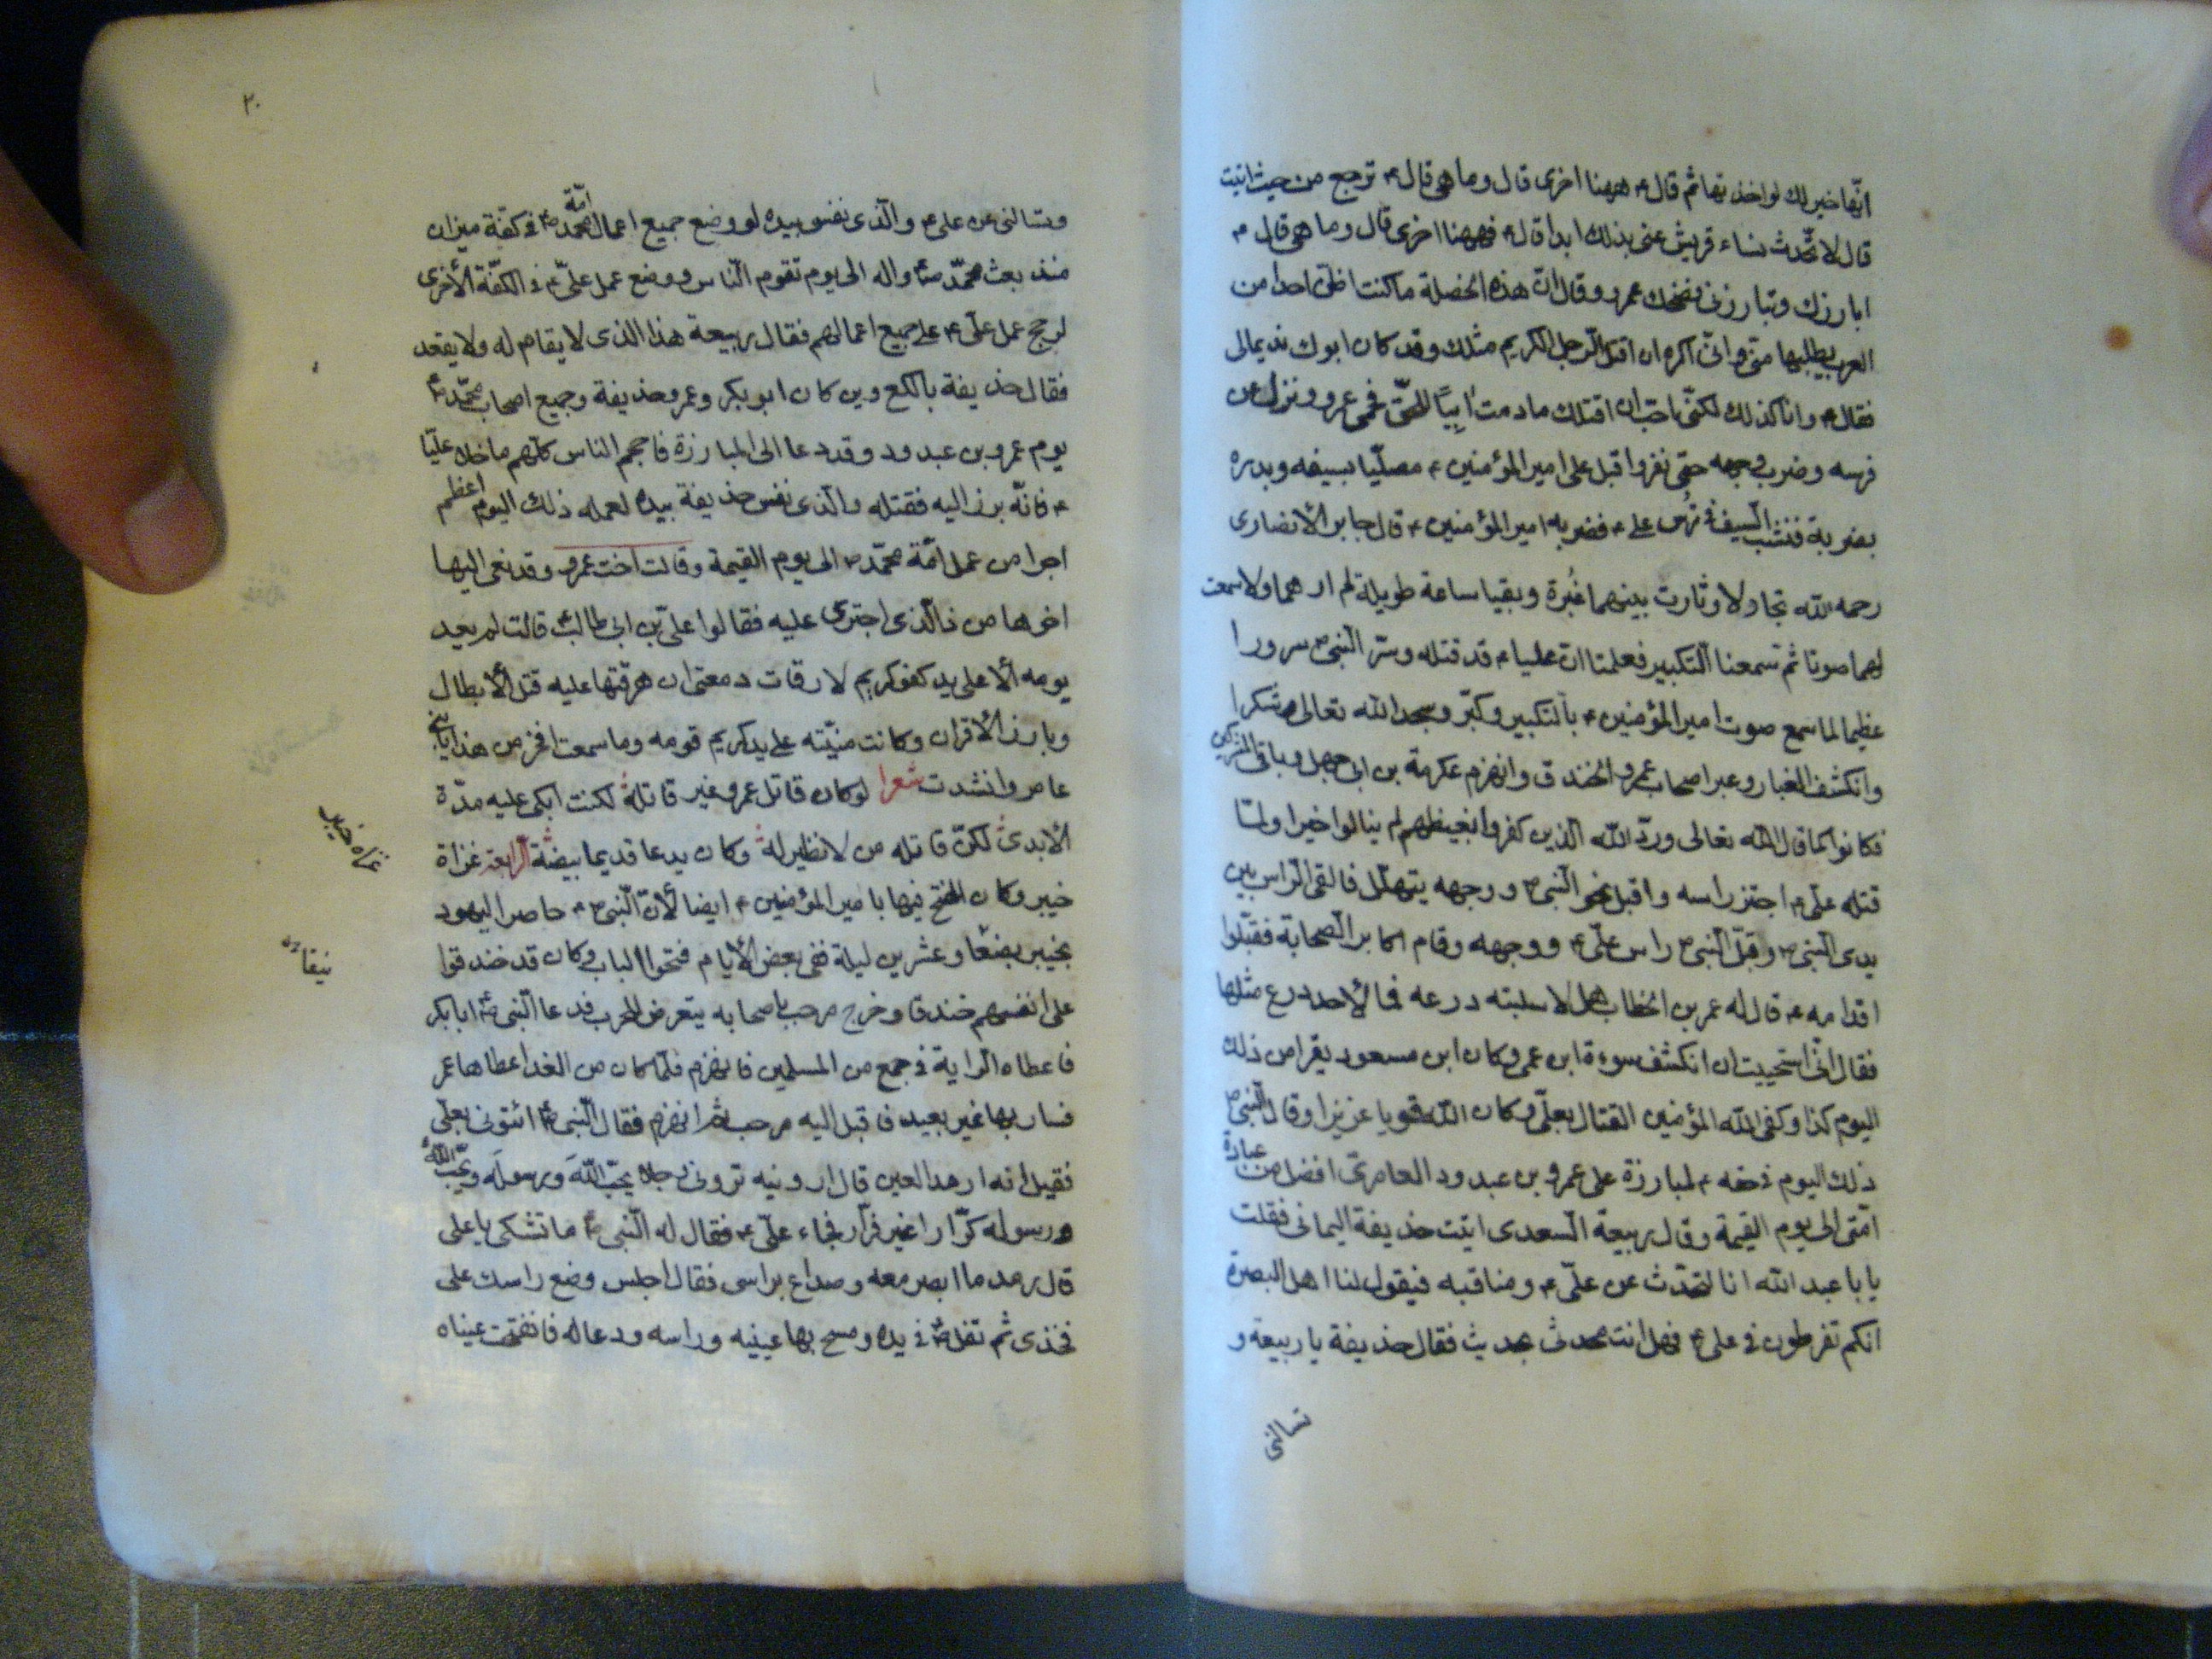 انّها خير لك لو اخذتها ثم قال ۴ ههنا اخرى قال وما هى قال ۴ ترجع من حيث اتيت
قال لا تحدّث نساء قريش عنى بذلك ابدا قال ۴ فههنا اخرى قال وما هى قال ۴
ابارزك وتبارزنى فضحك عمرو وقال انّ هذه الخصلة ما كنت اظنّ احدا من
العرب يطلبها منّى وانّى اكره ان اقتل الرّجل الكريم مثلك وقد كان ابوك نديمالى
فقال ۴ وانا كذلك لكنّى احبّ ان اقتلك ما دمت ابيًا للحقّ فحمى عمرو ونزل عن
فرسه وضرب وجهه حتى نفر واقبل على امير المؤمنين ۴ مصلّيا بسيفه وبدره
بضربة فنشب السّيف فى ترس على ۴ فضربه امير المؤمنين ۴ قال جابر الأنصارى
رحمه الله تجاولا وثارت بينهما غُبرة وبقيا ساعة طويلة لم ارهما ولا سمعت
لهما صوتا ثم سمعنا التّكبير فعلمنا انّ عليا ۴ قد قتله وسرّ النّبى ص سرورا
عظيما لما سمع صوت امير المؤمنين ۴ بالتكبير وكبّر وسجد لله تعالى شكرا
وانكشف الغبار وعبر اصحاب عمرو الخندق وانهزم عكرمة بن ابى جهل وباقى المشركين
فكانوا كما قال الله تعالى وردّ الله الّذين كفروا بغيظهم لم ينالوا خيرا ولمّا
قتله علىّ ۴ اجتز راسه واقبل نحو النّبى ص ووجهه يتهلّل فالقى الرّاس بين
يدى النّبى ص وقبّل النّبى ص راس علىّ ۴ ووجهه وقام اكابر الصّحابة فقبّلوا
اقدامه ۴ قال له عمر بن الخطاب هلّا سلبته درعه فما لأحد درع مثلها
فقال انّى استحييت ان انكشف سوءة ابن عمى وكان ابن مسعود يقرا من ذلك
اليوم كذا وكفى الله المؤمنين القتال بعلىّ وكان الله قويا عزيزا وقال النّبى ص
ذلك اليوم فى حقه ۴ لمبارزة على عمرو بن عبدود العامرىّ افضل من عبادة
امّتى الى يوم القيمة وقال ربيعة السّعدى اتيت حذيفة اليمانى فقلت
يابا عبد الله انا لنتحدّث عن علىّ ۴ ومناقبه فيقول لنا اهل البصرة
انكم تفرطون فى على ۴ فهل انت محدثى بحديث فقال حذيفة يا ربيعة و
تسالنى
٢٠
وتسالنى عن على ۴ والّذى نفسى بيده لو وضع جميع اعمال امّة محمّد ص فى كفّة ميزان
منذ بعث محمّد ص واله الى يوم تقوم النّاس ووضع عمل علىّ ۴ فى الكفّة الأخرى
لرجح عمل علىّ ۴ على جميع اعمالهم فقال ربيعة هذا الذى لا يقام له ولا يقعد
فقال حذيفة يالكع وين كان ابوبكر وعمر وحذيفة وجميع اصحاب محمّد ص
يوم عمرو بن عبدود وقد دعا الى المبارزة فاحجم الناس كلّهم ما خلا عليّا
۴ فانّه برز اليه فقتله والّذى نفس حذيفة بيده لعمله ذلك اليوم اعظم
اجرا من عمل امّة محمّد ص الى يوم القيمة وقالت اخت عمرو وقد نعى اليها
اخوها من ذا الّذى اجترى عليه فقالوا علىّ بن ابى طالب ۴ قالت لم يعد
يومه الّا على يد كفو كريم لا رقات دمعتى ان هرقتها عليه قتل الأبطال
وبارز الأقران وكانت منيّته على يد كريم قومه وما سمعت افخر من هذا يا بنى
عامر وانشدت شعرا لو كان قاتل عمرو غير قاتله لكنت ابكى عليه مدّة
الأبدى لكنّ قاتله من لا نظير له وكان يدعا قديما بيضة الرابعة غزاة
خيبر وكان الفتح فيها بامير المؤمنين ۴ ايضا لأنّ النّبى ص حاصر اليهود
بخيبر بضعًا وعشرين ليلة ففى بعض الأيام فتحوا الباب وكان قد خندقوا
على انفسهم خندقا وخرج مرحب باصحابه يتعرض للحرب فدعا النّبى ص ابا بكر
فاعطاه الرّاية فى جمع من المسلمين فانهزم فلمّا كان من الغد اعطاها عمر
فسار بها غير بعيد فاقبل اليه مرحب فانهزم فقال النّبى ص ائتونى بعلىّ
فقيل انّه ارمد العين قال ارونيه ترونى رجلا يحبّ اللهَ ورسولَه ويحبّه اللهُ
ورسوله كرّارا غير فرّار فجاء علىّ ۴ فقال له النّبى ص ما تشكى يا على
قال رمد ما ابصر معه وصداع براسى فقال اجلس وضع راسك على
فخذى ثم تفل ص فى يده ومسح بها عينيه وراسه ودعا له فانفتحت عيناه
غزاة خيبر